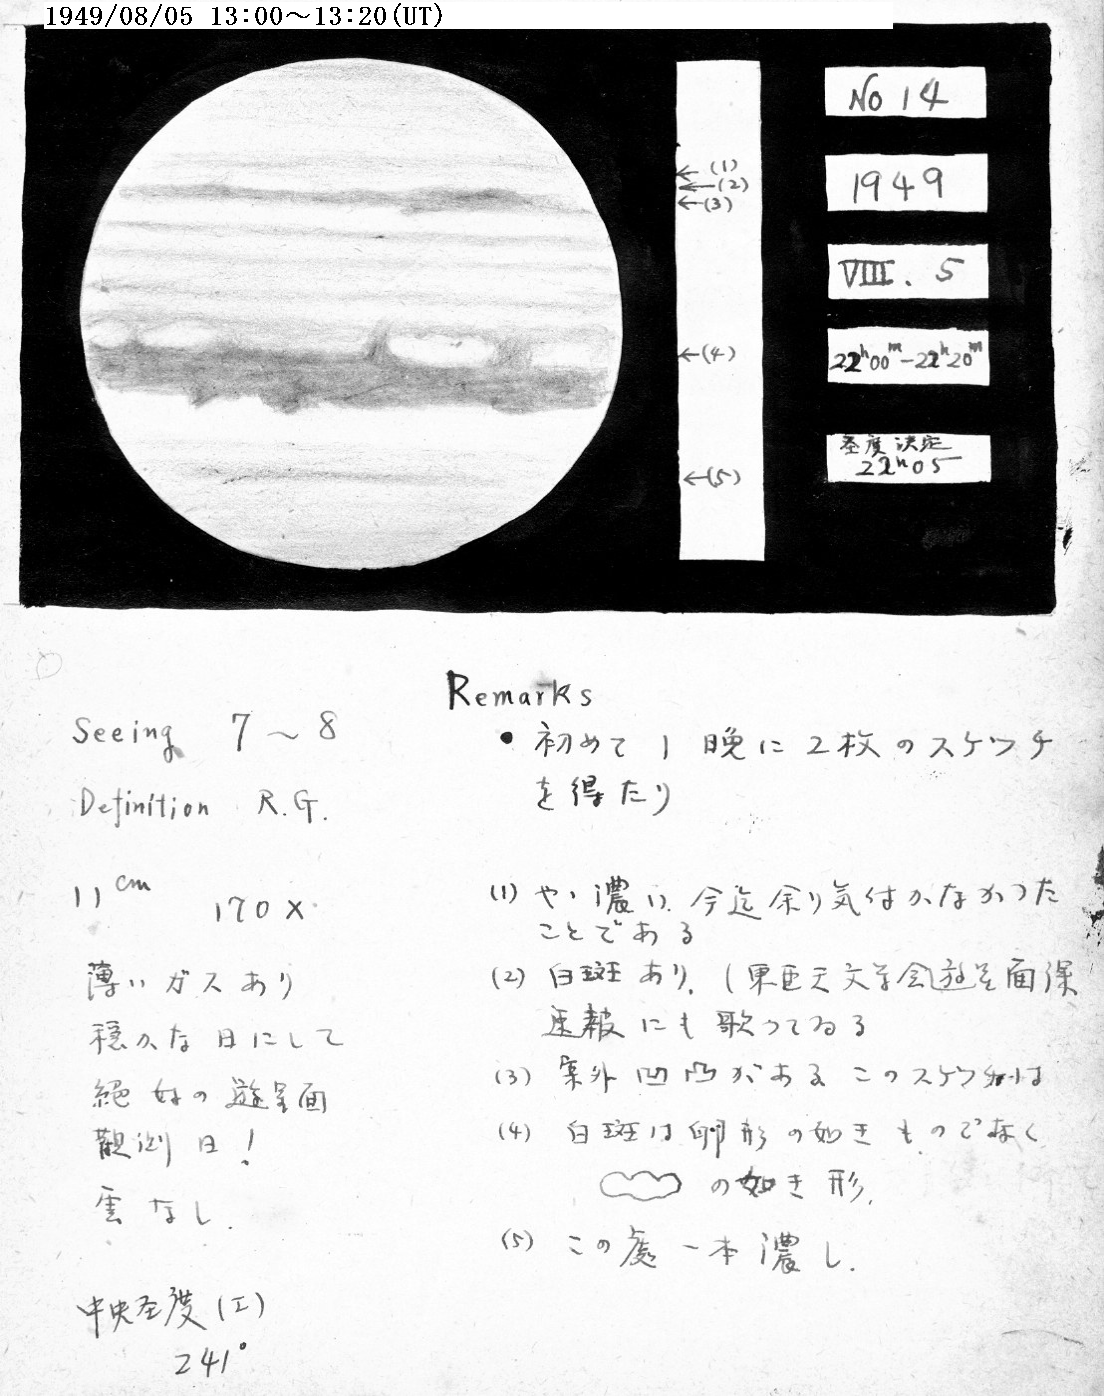 1949/08/05 13:00～13:20(UT)
No 14
1949
VIII. 5
22h00m-22h20m
圣度决定
22h05
←(1)
←(2)
←(3)
←(4)
←(5)
Seeing 7～8
Definition R.G.
11cm 170×
薄いガスあり
穏かな日にして
絕好の遊星面
観測日!
雲なし.
中央圣度(I)
241°
Remarks
• 初めて1晩に2枚のスケッチ
を得たり
(1) やゝ濃い. 今迄余り気付かなかつた
ことである
(2) 白斑あり. (東亜天文学会遊星面課
速報にも歌つてゐる
(3) 案外凹凸がある このスケッチは
(4) 白斑は卵形の如きものでなく
の如き形.
(5) この處一本濃し.